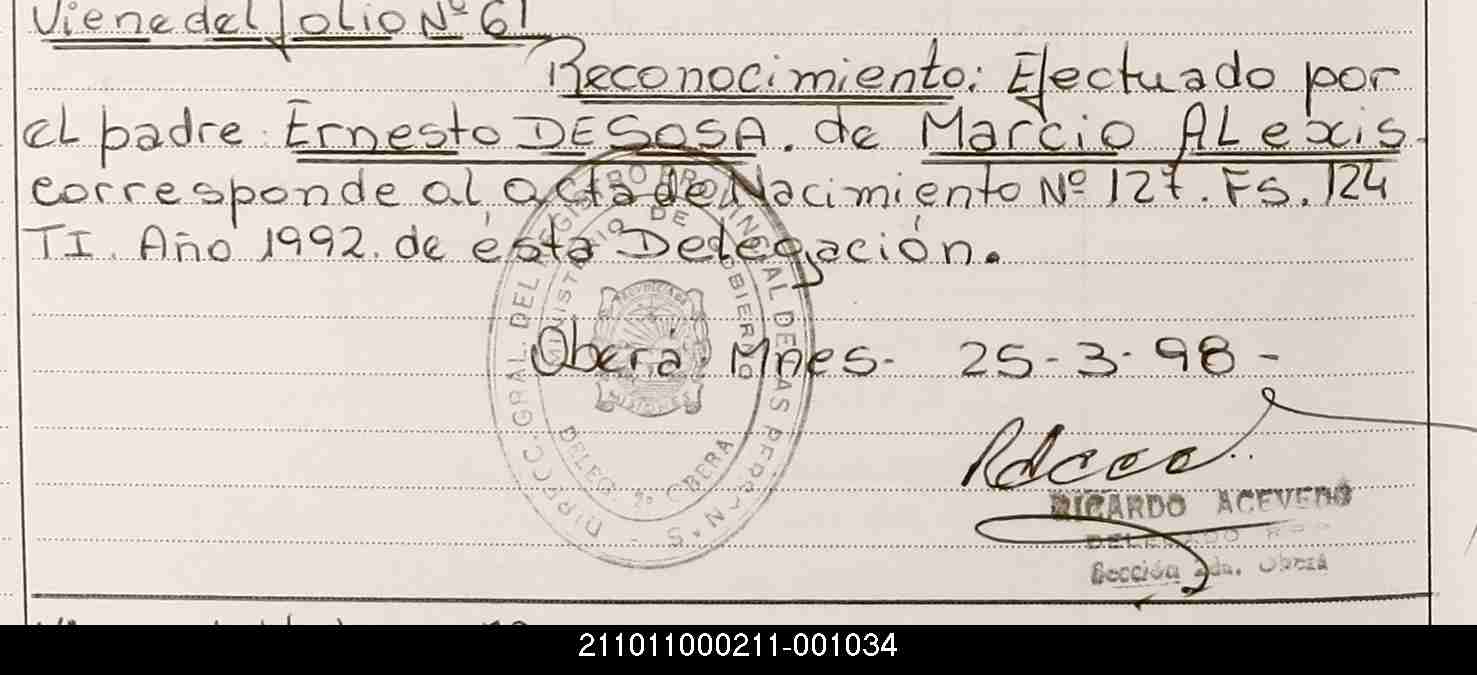 Viene del folio Nº 61
Reconocimiento: Efectuado por
el padre: Ernesto DE SOSA. de Marcio ALexis.
corresponde al acta de Nacimiento Nº 127. FS. 124
TI. Año 1992. de ésta Delegación.
Oberá Mnes. 25-3-98-
DIRECC. GRAL. DEL REGISTRO PROVINCIAL DE LAS PERSONAS
MINISTERIO DE GOBIERNO
PROVINCIA DE
MISIONES
DELEG. OBERA
RICARDO ACEVEDO
DELEGADO
Sección 2da. Oberá
211011000211-001034